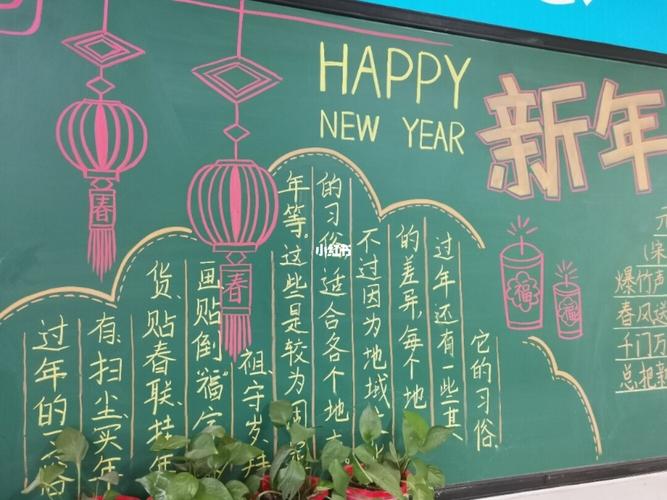 HAPPY
NEW YEAR
新年
春
春
福
福
小红书
过年的
有:扫尘、买年
货、贴春联、挂年
画、贴倒福字
祖、守岁、拜
年等。这些是较为
的习俗,适合各个地
不过因为地域
的差异,每个地
过年还有一些其
它的习俗
(宋
爆竹声
春风送
千门万
总把新